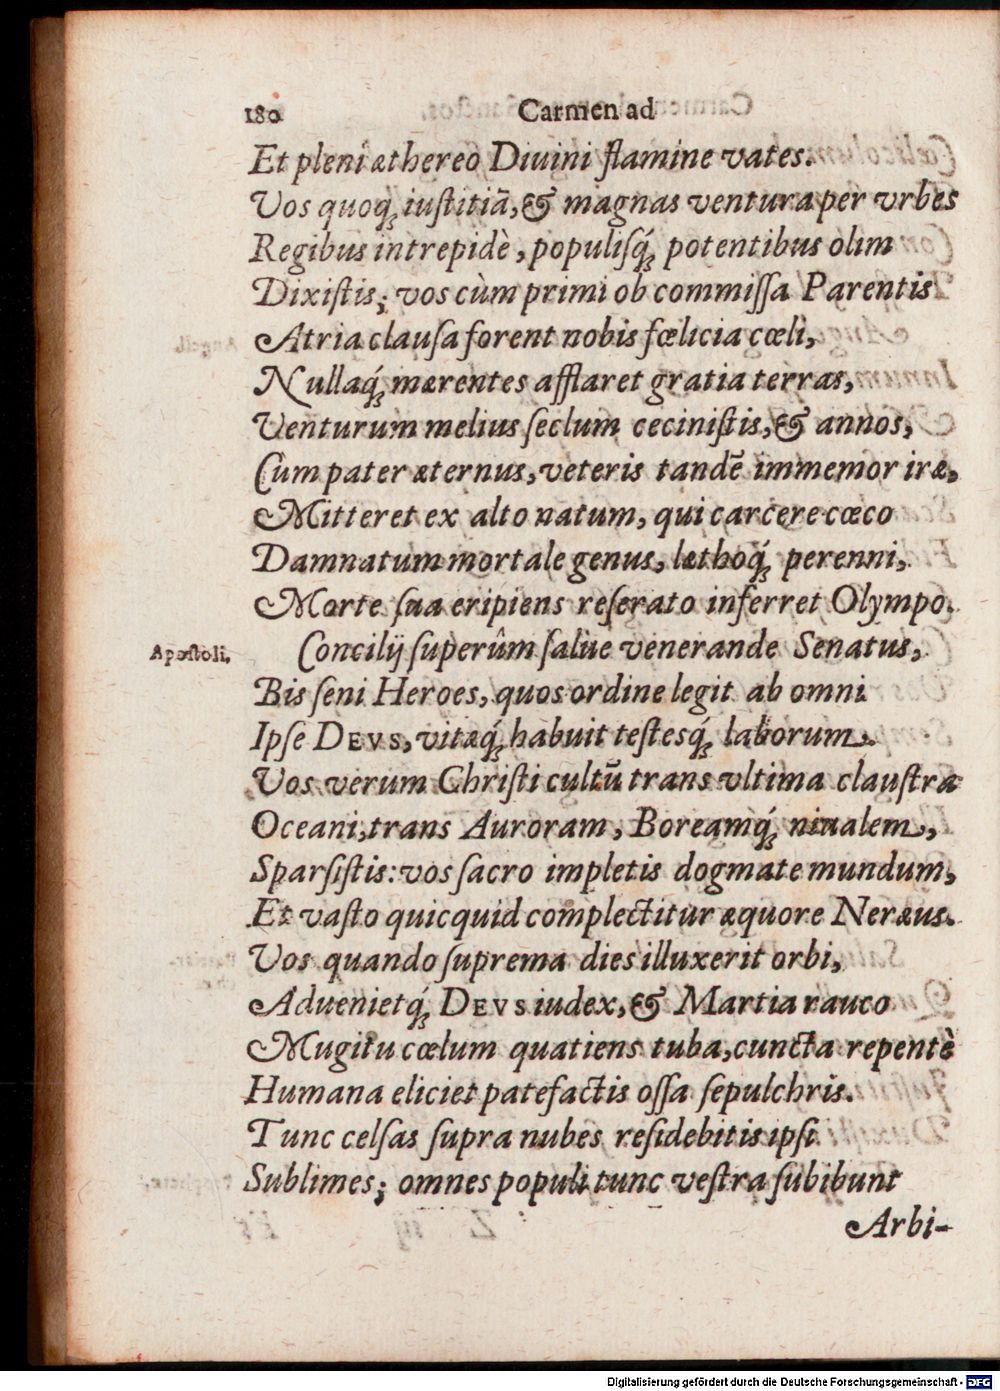 180 Carmen ad
Et pleni æthereo Diuini flamine vates.
Vos quoq́ꝫ iuſtitiā, & magnas ventura per vrbes
Regibus intrepidè, populiſq́ꝫ potentibus olim
Dixiſtis; vos cùm primi ob commiſſa Parentis
Atria clauſa forent nobis fœlicia cœli,
Nullaq́ꝫ mærentes afflaret gratia terras,
Venturum melius ſeclum ceciniſtis, & annos,
Cum pater æternus, veteris tandē immemor iræ,
Mitteret ex alto natum, qui carcere cœco
Damnatum mortale genus, læthoq́ꝫ perenni,
Morte ſua eripiens reſerato inferret Olympo.
Apoſtoli. Concilij ſuperûm ſalue venerande Senatus,
Bis ſeni Heroes, quos ordine legit ab omni
Ipſe DEVS, vitæq́ꝫ habuit teſteſq́ꝫ laborum.
Vos verum Chriſti cultū trans vltima clauſtra
Oceani, trans Auroram, Boreamq́ꝫ niualem,
Sparſiſtis: vos ſacro impletis dogmate mundum,
Et vaſto quicquid complectitur æquore Neræus.
Vos quando ſuprema dies illuxerit orbi,
Aduenietq́ꝫ DEVS iudex, & Martia rauco
Mugitu cœlum quatiens tuba, cuncta repentè
Humana eliciet patefactis oſſa ſepulchris.
Tunc celſas ſupra nubes reſidebitis ipſi
Sublimes; omnes populi tunc veſtra ſubibunt
Arbi-
Digitalisierung gefördert durch die Deutsche Forschungsgemeinschaft - DFG